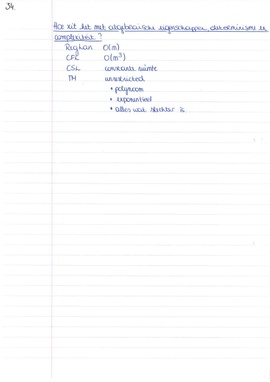 34.
Hoe zit het met algebraïsche eigenschappen, determinisme en
complexiteit?
Reglan O(n)
CFL O(n³)
CSL constante ruimte
TM unrestricted
• polynoom
• exponentieel
• alles wat slechter is